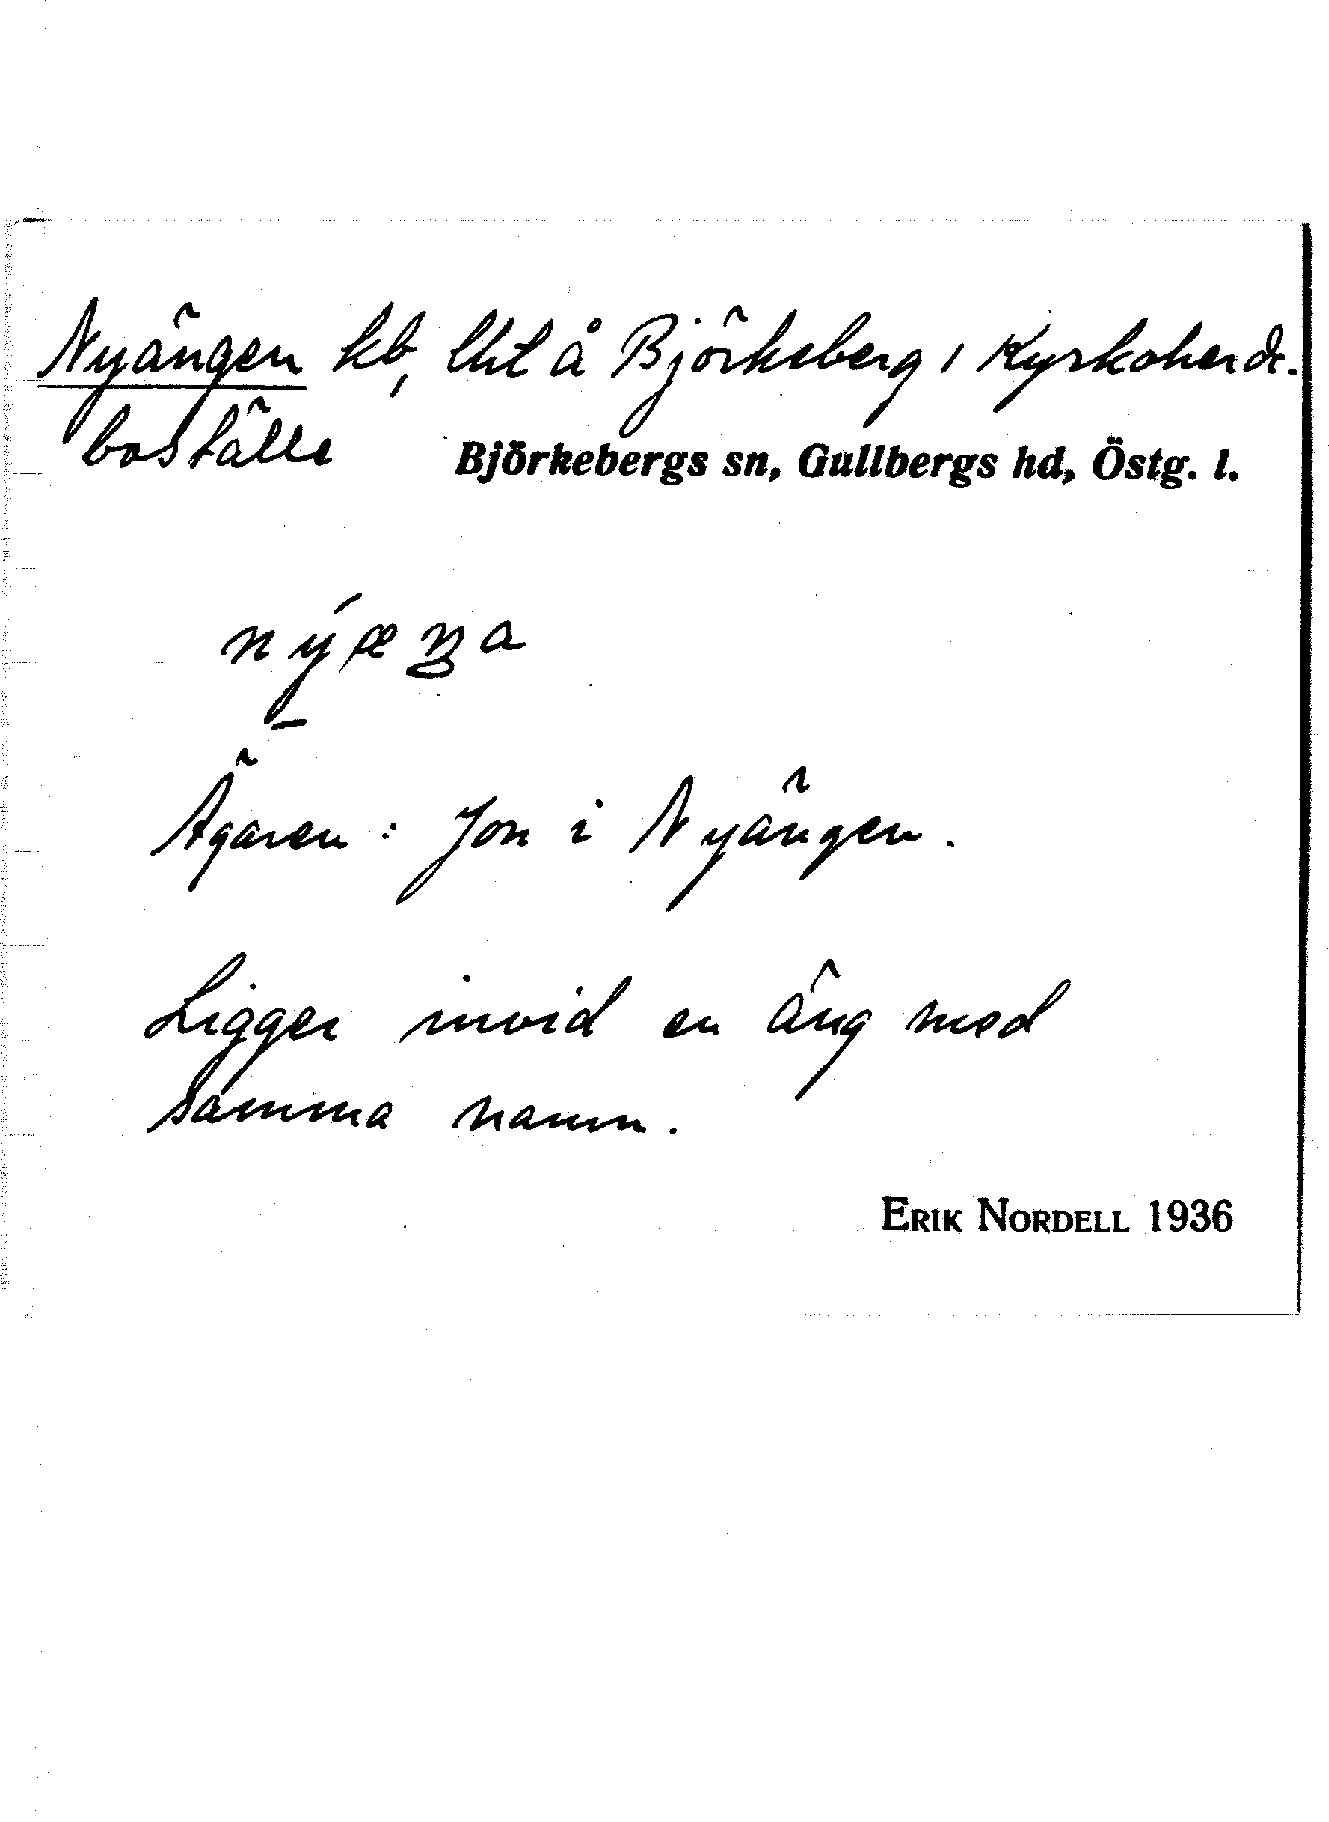 Nyängen hb, lht å Björkeberg, Kyrkoherde-
boställe Björkebergs sn, Gullbergs hd, Östg. l.
Ägaren: Jon i Nyängen.
Ligger invid en äng med
samma namn.
ERIK NORDELL 1936